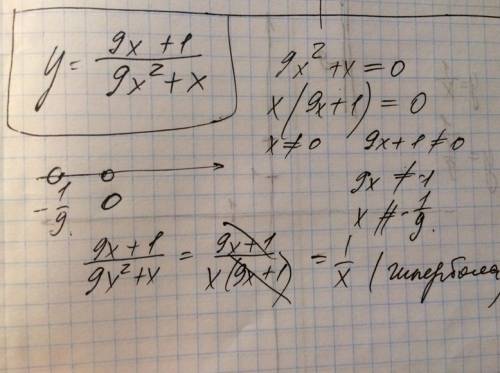 y = \frac{9x+1}{9x^2+x}
9x^2+x=0
x(9x+1)=0
x≠0 9x+1≠0
9x≠-1
x≠-\frac{1}{9}.
-\frac{1}{9} 0
\frac{9x+1}{9x^2+x} = \frac{9x+1}{x(9x+1)} = \frac{1}{x} (гипербола)